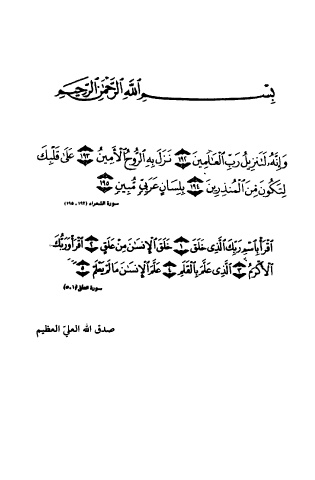 بِسْمِ اللَّهِ الرَّحْمَٰنِ الرَّحِيمِ
وَإِنَّهُ لَتَنزِيلُ رَبِّ الْعَالَمِينَ ﴿١٩٢﴾ نَزَلَ بِهِ الرُّوحُ الْأَمِينُ ﴿١٩٣﴾ عَلَىٰ قَلْبِكَ
لِتَكُونَ مِنَ الْمُنذِرِينَ ﴿١٩٤﴾ بِلِسَانٍ عَرَبِيٍّ مُّبِينٍ ﴿١٩٥﴾
سورة الشعراء (١٩٢-١٩٥)
اقْرَأْ بِاسْمِ رَبِّكَ الَّذِي خَلَقَ ﴿١﴾ خَلَقَ الْإِنسَانَ مِنْ عَلَقٍ ﴿٢﴾ اقْرَأْ وَرَبُّكَ
الْأَكْرَمُ ﴿٣﴾ الَّذِي عَلَّمَ بِالْقَلَمِ ﴿٤﴾ عَلَّمَ الْإِنسَانَ مَا لَمْ يَعْلَمْ ﴿٥﴾
سورة العلق (١-٥)
صدق الله العلي العظيم